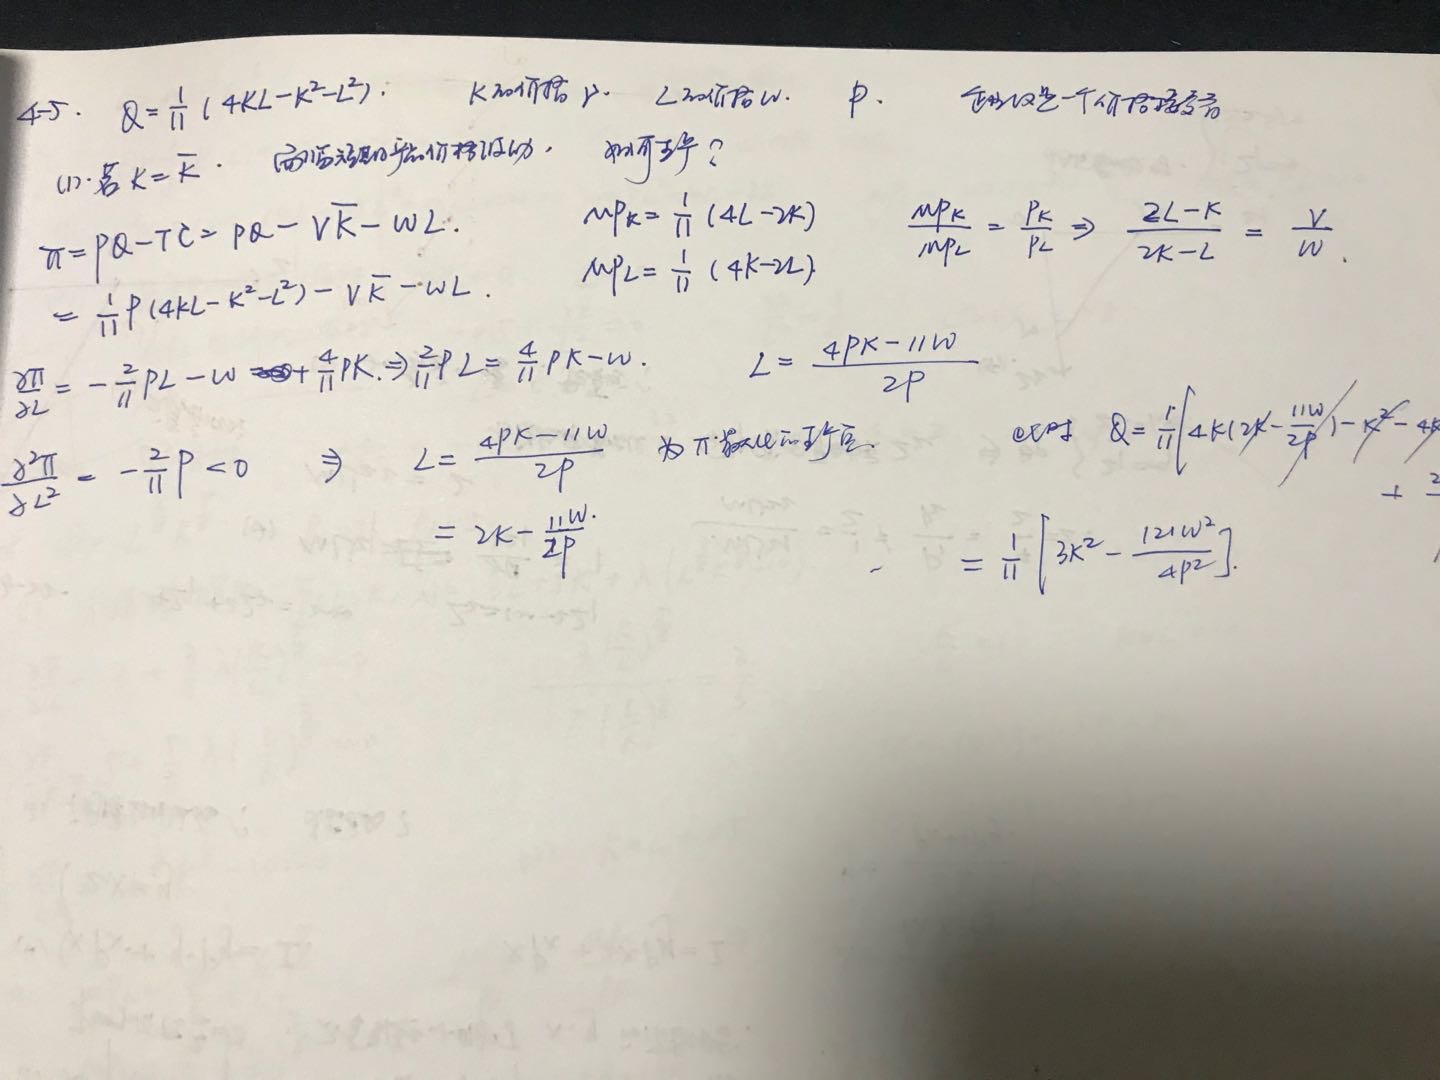 4-5. Q=1/11(4KL-K²-L²). K的价格v. L的价格w. P.
(1).若K=K̄. 面临短期产品价格波动. 如何生产?
π=PQ-TC=PQ-VK̄-WL.
=1/11P(4KL-K²-L²)-VK̄-WL.
MP_K=1/11(4L-2K)
MP_L=1/11(4K-2L)
MP_K/MP_L=P_K/P_L⇒(2L-K)/(2K-L)=V/W.
∂π/∂L=-2/11PL-W+4/11PK.⇒2/11PL=4/11PK-W. L=(4PK-11W)/2P
∂²π/∂L²=-2/11P<0 ⇒ L=(4PK-11W)/2P 为π最大化的
=2K-11W/2P.
此时 Q=1/11[4K(2K-11W/2P)-K²-4K
+
=1/11[3K²-121W²/4P²].